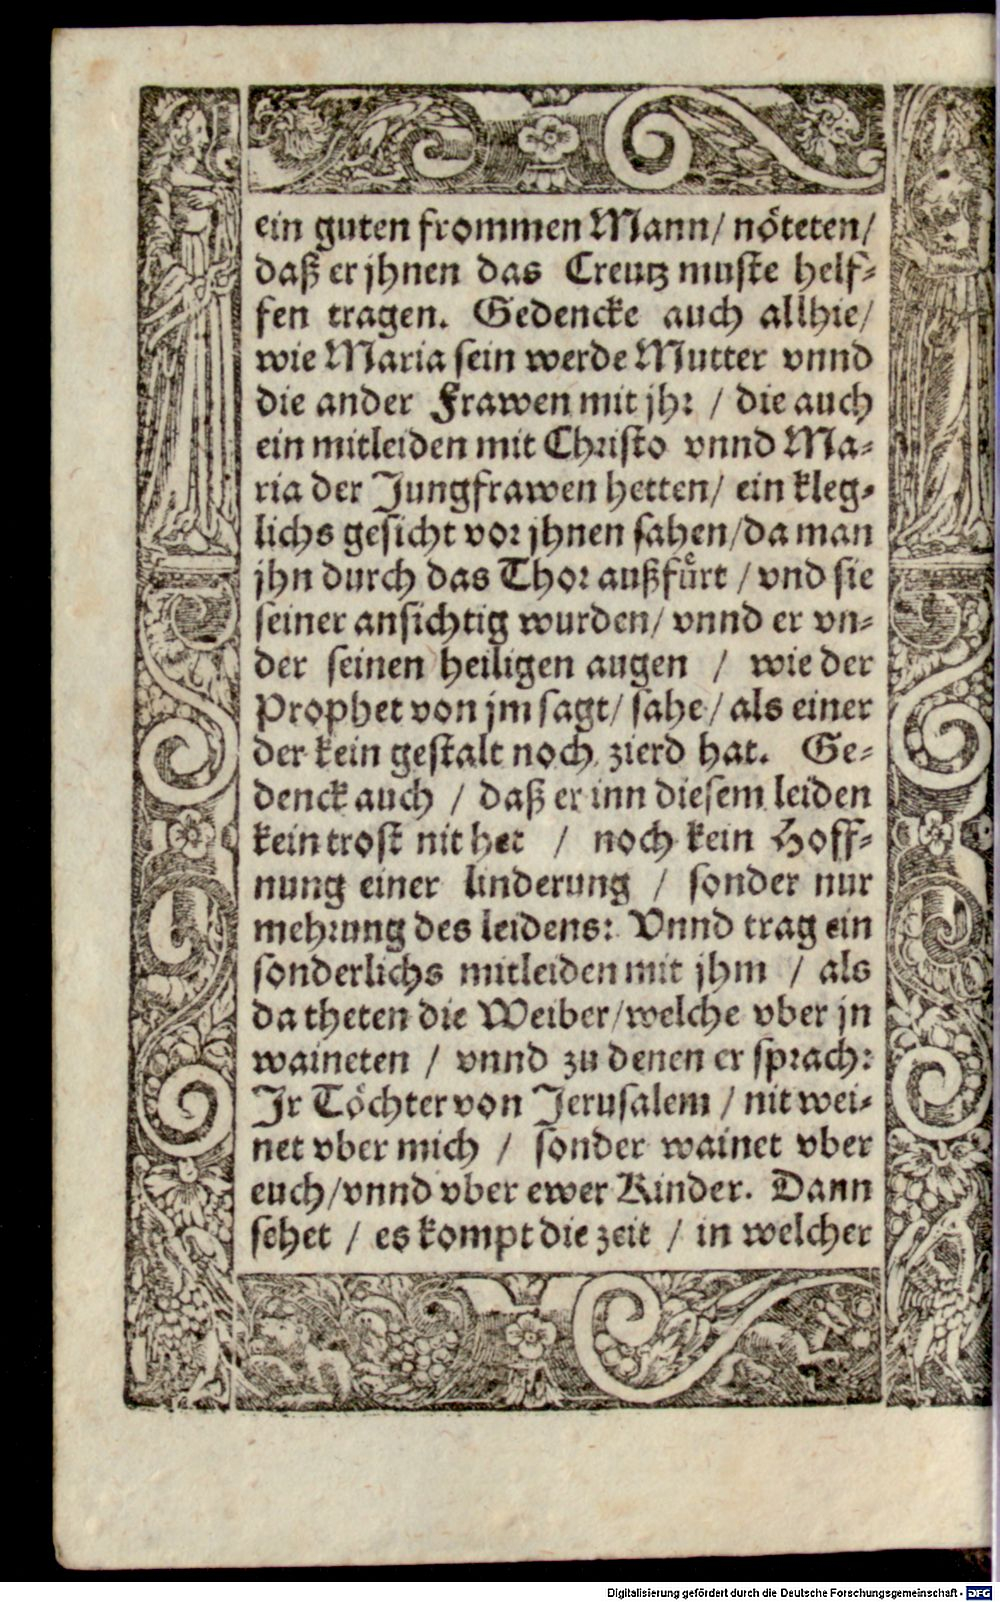 ein guten frommen Mann/ nöteten/
daß er jhnen das Creutz muste helf-
fen tragen. Gedencke auch allhie/
wie Maria sein werde Mutter vnnd
die ander Frawen mit jhr / die auch
ein mitleiden mit Christo vnnd Ma-
ria der Jungfrawen hetten/ ein kleg-
lichs gesicht vor jhnen sahen/da man
jhn durch das Thor außfürt / vnd sie
seiner ansichtig wurden/ vnnd er vn-
der seinen heiligen augen / wie der
Prophet von jm sagt/ sahe/ als einer
der kein gestalt noch zierd hat. Ge-
denck auch / daß er inn diesem leiden
kein trost nit het / noch kein Hoff-
nung einer linderung / sonder nur
mehrung des leidens: Vnnd trag ein
sonderlichs mitleiden mit jhm / als
da theten die Weiber/welche vber jn
waineten / vnnd zu denen er sprach:
Jr Töchter von Jerusalem / nit wei-
net vber mich / sonder wainet vber
euch/vnnd vber ewer Kinder. Dann
sehet / es kompt die zeit / in welcher
Digitalisierung gefördert durch die Deutsche Forschungsgemeinschaft - DFG